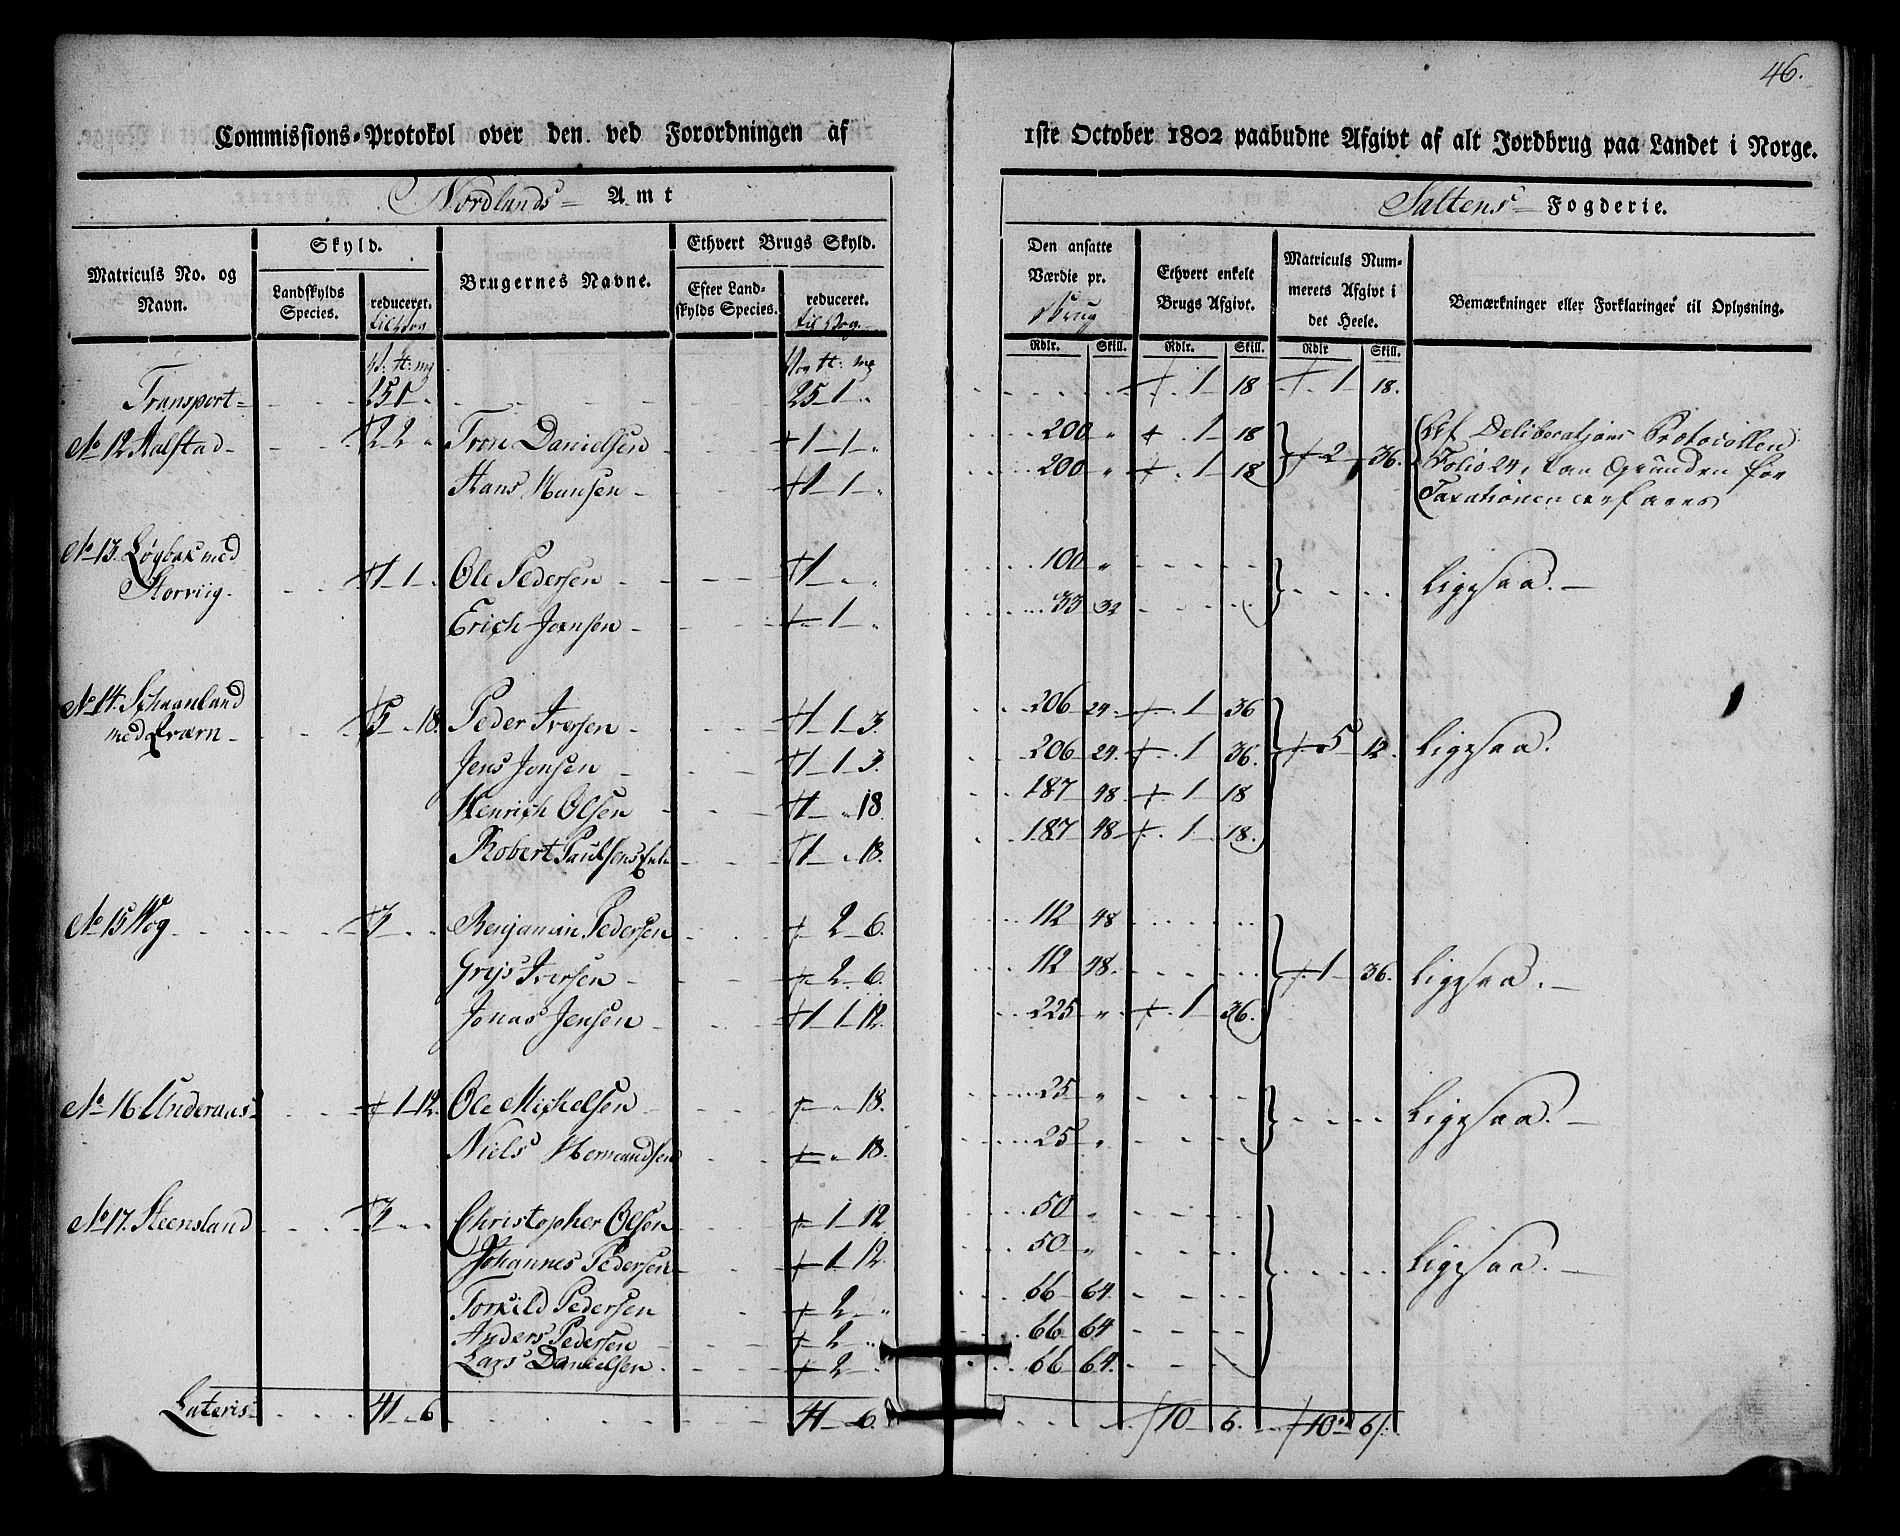 46.
Commissions-Protokol over den ved Forordningen af 1ste October 1802 paabudne Afgivt af alt Jordbrug paa Landet i Norge.
Nordlands Amt
Saltens Fogderie.
Matriculs No. og Navn.
Skyld.
Landskylds Species.
reduceret. til Vog
Brugernes Navne.
Ethvert Brugs Skyld.
Efter Landskylds Species.
reduceret. til Vog.
Den ansatte Værdie pr. Brug
Ethvert enkelt Brugs Afgivt.
Matriculs Nummerets Afgivt i det Heele.
Bemærkninger eller Forklaringer til Oplysning.
Rdlr. Skill. Rdlr. Skill. Rdlr Skill.
V: ℔: mg Vog ℔: mg
Transport 25 1 " 25 1 " 1 18 1 18.
No 12 Halstad 2 2 " Tron Danielsen 1 1 " 200 " 1 18 2 36. Deliberations Protocollen
Hans Hansen 1 1 " 200 " 1 18 Folio 24, kan Grunden for
Taxationen erfares
No 13. Løgbak med
Storviig 1 1 " Ole Pedersen 1 " " 100 " Ligesaa.
Erich Jonsen 1 " 33 32
No 14. Schaanland
med Qværn 5 " 18. Peder Iversen 1 1 3. 206 24 1 36 5 12. Ligesaa.
Jens Jonsen 1 1 3. 206 24 1 36.
Henrich Olsen 1 " 18. 187 48 1 18
Robert Paulsens Enke 1 " 18. 187 48 1 18.
No 15 Wog Benjamin Pedersen 2 6. 112 48 1 36. Ligesaa.
Iversen 2 6. 112 48.
Jonas Jensen 1 1 12. 225 " 1 36.
No 16 Underaas 1 12. Ole Michelsen " 18. 25 " Ligesaa.
Niels Hemandsen " 18. 25 "
No 17. Steensland Christopher Olsen 1 12. 50 " Ligesaa.
Johannes Pedersen 1 12. 50 "
Torkild Pedersen 2 " 66 64.
Anders Pedersen 2 " 66 64
Lars Danielsen 2 " 66 64.
Lateris 41 6 41 6. 10 6. 10 6.